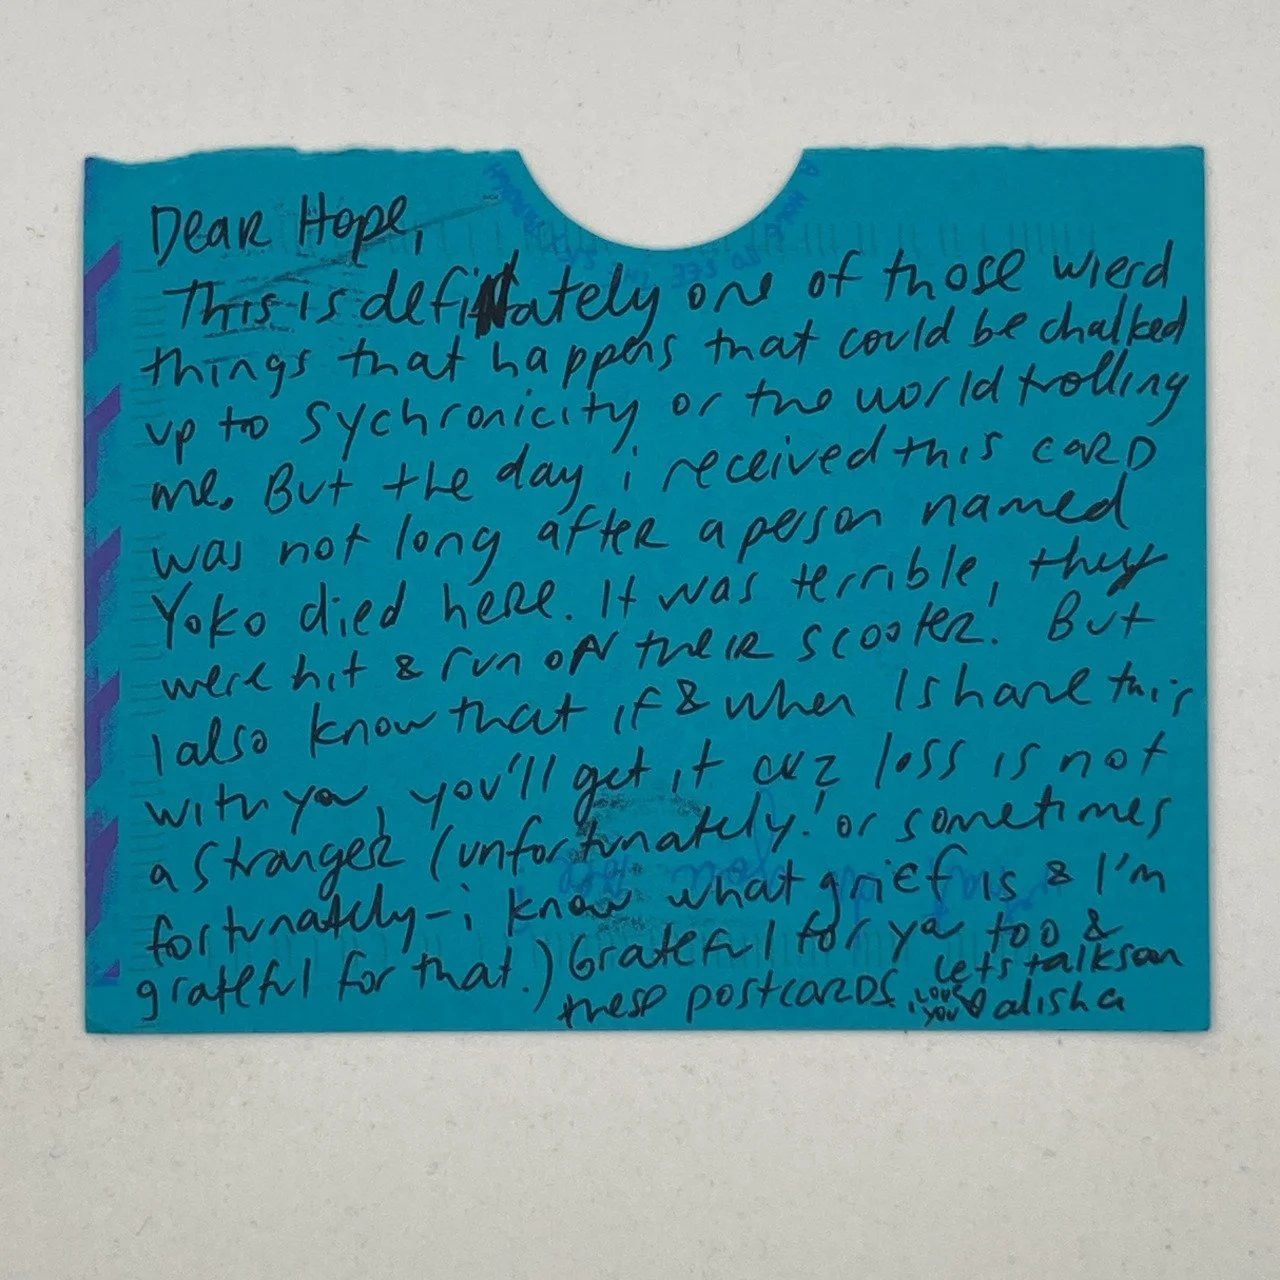 Dear Hope,
This is definately one of those wierd
things that happens that could be chalked
up to sychronicity or the world trolling
me. But the day i received this card
was not long after a person named
Yoko died here. It was terrible, they
were hit & run on their scooter. But
I also know that if & when I share this
with you, you'll get it cuz loss is not
a stranger (unfortunately! or sometimes
fortunately - i know what grief is & I'm
grateful for that.) Grateful for ya too &
these postcards. Lets talk soon
love you alisha